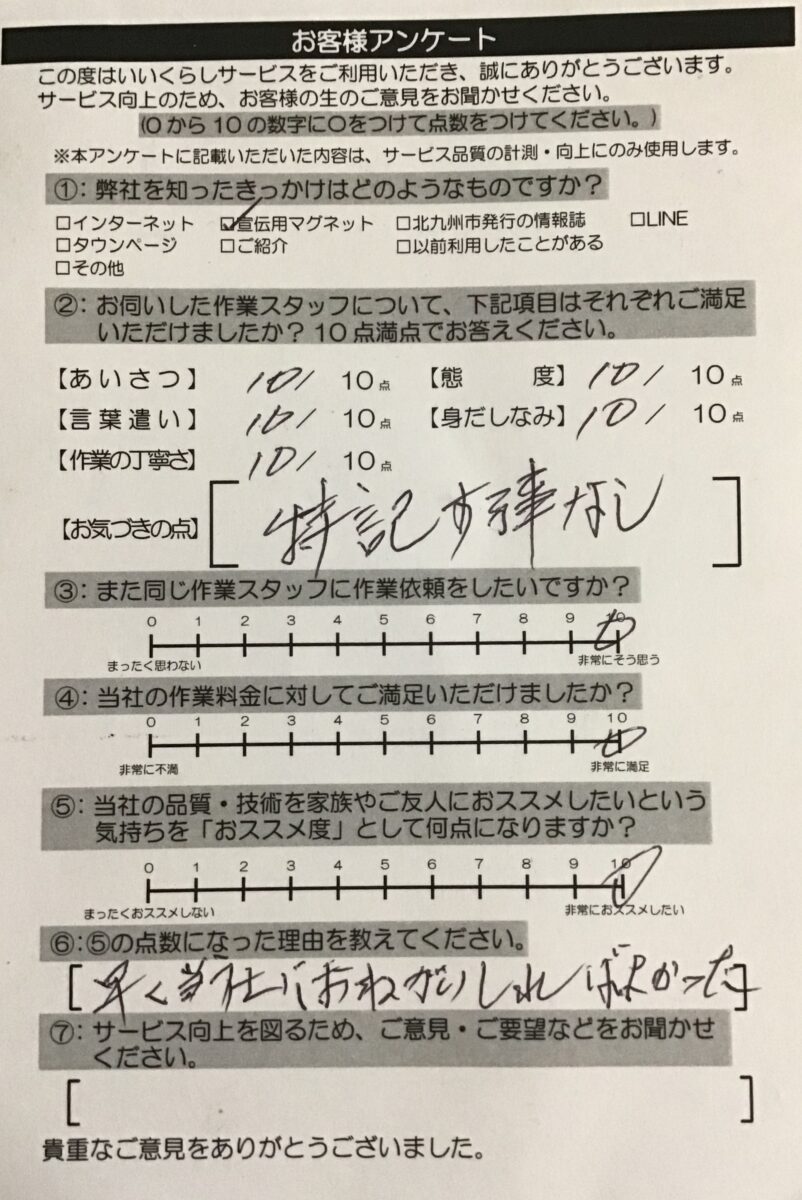 お客様アンケート
この度はいいくらしサービスをご利用いただき、誠にありがとうございます。
サービス向上のため、お客様の生のご意見をお聞かせください。
(0から10の数字に○をつけて点数をつけてください。)
※本アンケートに記載いただいた内容は、サービス品質の計測・向上にのみ使用します。
①：弊社を知ったきっかけはどのようなものですか？
□インターネット ☑宣伝用マグネット □北九州市発行の情報誌 □LINE
□タウンページ □ご紹介 □以前利用したことがある
□その他
②：お伺いした作業スタッフについて、下記項目はそれぞれご満足
いただけましたか？10点満点でお答えください。
【あいさつ】 10/ 10点 【態度】 10/ 10点
【言葉遣い】 10/ 10点 【身だしなみ】 10/ 10点
【作業の丁寧さ】 10/ 10点
【お気づきの点】 [特記す事なし]
③：また同じ作業スタッフに作業依頼をしたいですか？
0 1 2 3 4 5 6 7 8 9 10
まったく思わない 非常にそう思う
④：当社の作業料金に対してご満足いただけましたか？
0 1 2 3 4 5 6 7 8 9 10
非常に不満 非常に満足
⑤：当社の品質・技術を家族やご友人におススメしたいという
気持ちを「おススメ度」として何点になりますか？
0 1 2 3 4 5 6 7 8 9 10
まったくおススメしない 非常におススメしたい
⑥：⑤の点数になった理由を教えてください。
[早く当社におねがいしればよかった]
⑦：サービス向上を図るため、ご意見・ご要望などをお聞かせ
ください。
[ ]
貴重なご意見をありがとうございました。